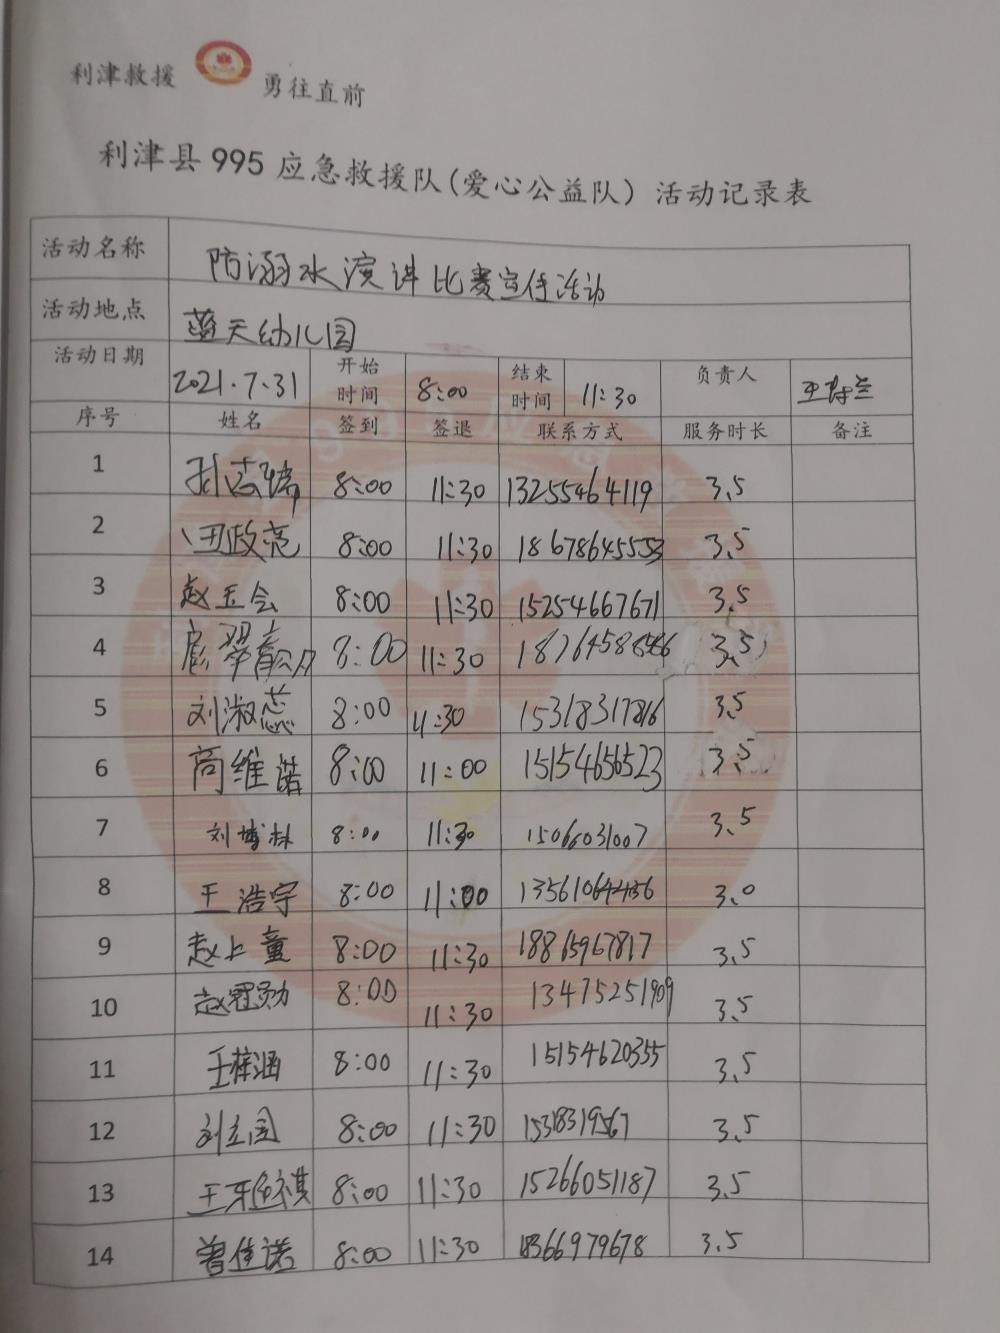 利津救援 勇往直前
利津县995应急救援队(爱心公益队) 活动记录表
活动名称 防溺水演讲比赛宣传活动
活动地点 蓝天幼儿园
活动日期 2021.7.31 开始时间 8:00 结束时间 11:30 负责人
序号 姓名 签到 签退 联系方式 服务时长 备注
1 孙志瑞 8:00 11:30 13255464119 3.5
2 田政亮 8:00 11:30 18678645553 3.5
3 赵玉会 8:00 11:30 15254667671 3.5
4 8:00 11:30 3.5
5 刘淑蕊 8:00 11:30 15318317816 3.5
6 商维诺 8:00 11:00 15154656523 3.5
7 刘博林 8:00 11:30 15066031007 3.5
8 王浩宇 8:00 11:00 3.0
9 赵上童 8:00 11:30 18865967817 3.5
10 赵冠勋 8:00 11:30 13475251909 3.5
11 王梓涵 8:00 11:30 15154620355 3.5
12 刘立国 8:00 11:30 15318319567 3.5
13 8:00 11:30 15266051187 3.5
14 曾佳诺 8:00 11:30 18366979678 3.5